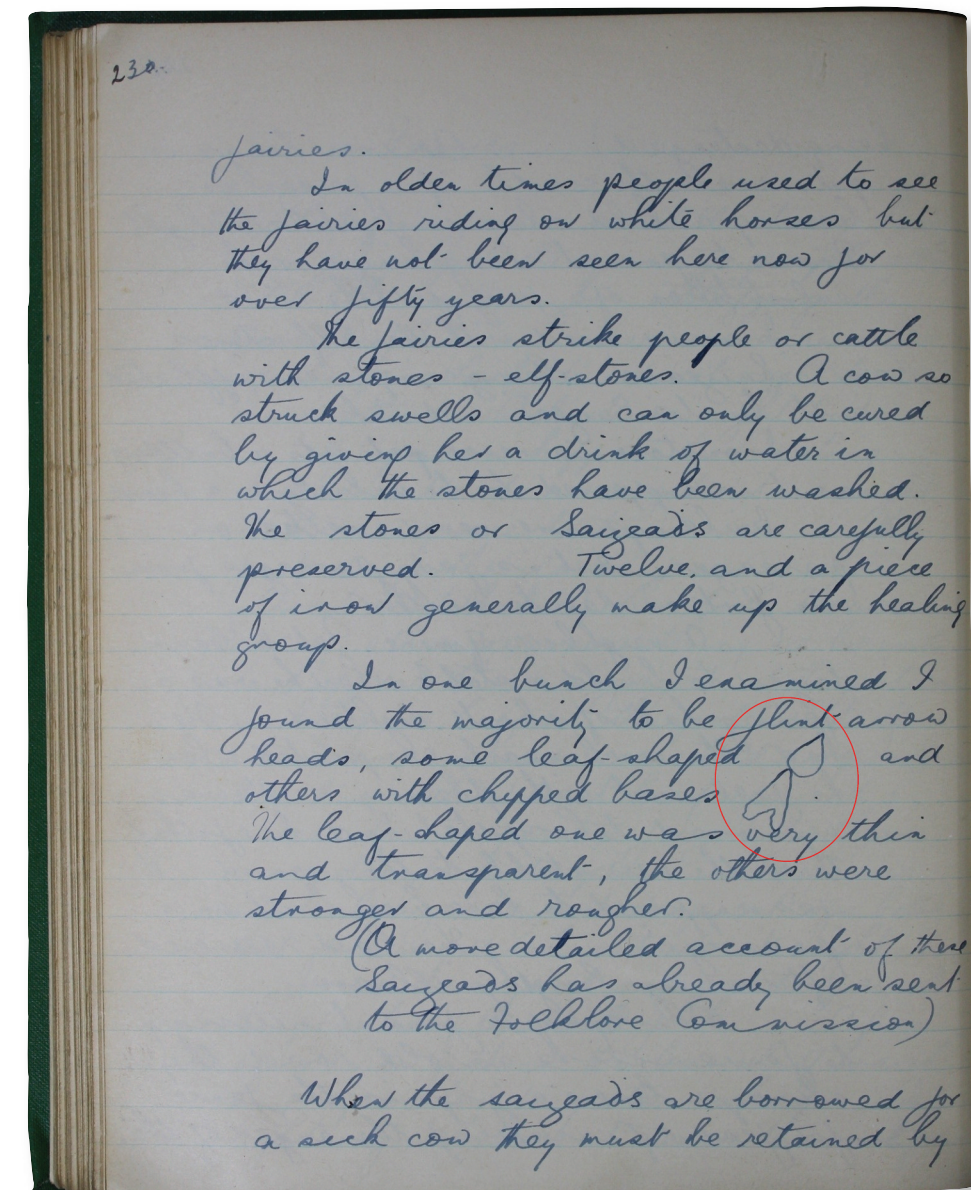 230.
fairies.
In olden times people used to see
the fairies riding on white horses but
they have not been seen here now for
over fifty years.
The fairies strike people or cattle
with stones - elf-stones. A cow so
struck swells and can only be cured
by giving her a drink of water in
which the stones have been washed.
The stones or Saigeads are carefully
preserved. Twelve, and a piece
of iron generally make up the healing
group.
In one bunch I examined I
found the majority to be flint arrow
heads, some leaf-shaped and
others with chipped bases .
The leaf-shaped one was very thin
and transparent, the others were
stronger and rougher.
(A more detailed account of these
Saigeads has already been sent
to the Folklore Commission)
When the saigeads are borrowed for
a sick cow they must be retained by